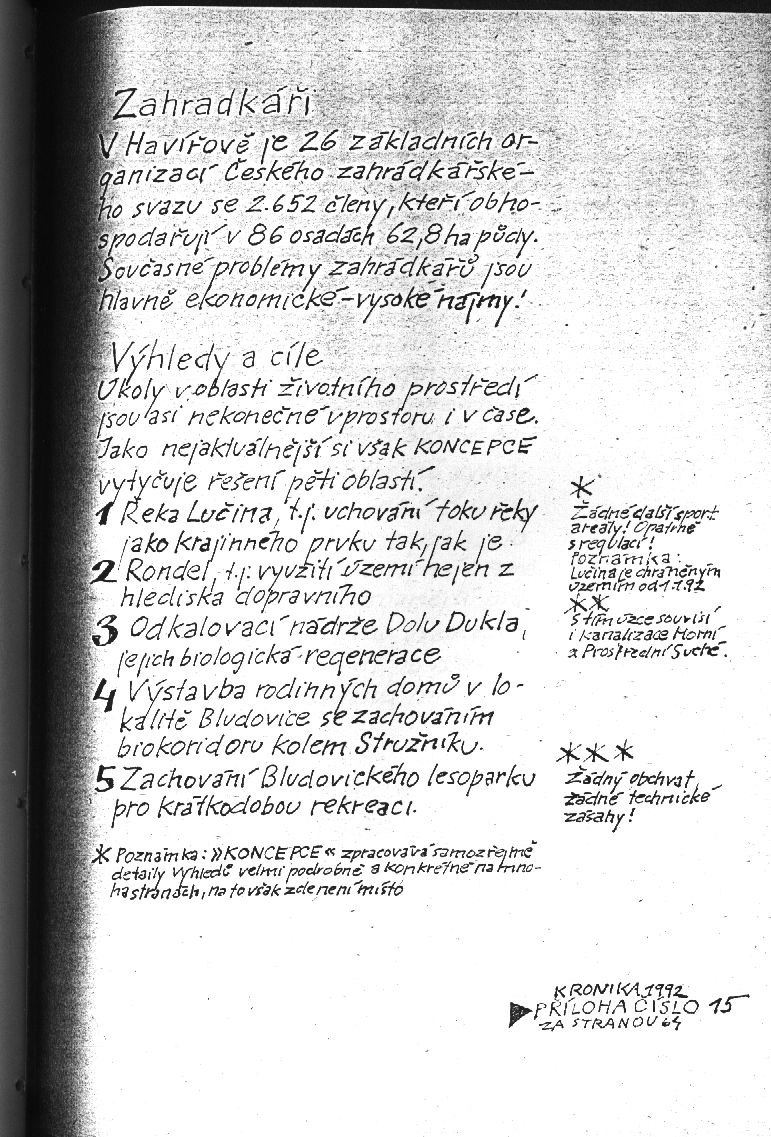 Zahradkáři
V Havířově je 26 základních or-
ganizací Českého zahrádkářské-
ho svazu se 2.652 členy, kteří obho-
spodařují v 86 osadách 62,8 ha půdy.
Současné problémy zahrádkářů jsou
hlavně ekonomické – vysoké nájmy!
Výhledy a cíle
Úkoly v oblasti životního prostředí
jsou asi nekonečné v prostoru i v čase.
Jako nejaktuálnější si však KONCEPCE
vytyčuje řešení pěti oblastí:
1 Řeka Lučina, t.j. uchování toku řeky
jako krajinného prvku tak, jak je.
2 Rondel, t.j. využití území nejen z
hlediska dopravního
3 Odkalovací nádrže Dolu Dukla,
jejich biologická regenerace
4 Výstavba rodinných domů v lo-
kalitě Bludovice se zachováním
biokoridoru kolem Stružníku.
5 Zachování Bludovického lesoparku
pro krátkodobou rekreaci.
* Poznámka: »KONCEPCE« zpracovává samozřejmě
detaily výhledů velmi podrobně a konkrétně na mno-
ha stranách, na to však zde není místo
*
Žádné další sport.
areály! Opatrně
s regulací!
Poznámka:
Lučina je chráněným
územím od 1.1.92
**
S tím úzce souvisí
i kanalizace Horní
a Prostřední Suché.
***
Žádný obchvat,
žádné technické
zásahy!
KRONIKA 1992
PŘÍLOHA ČÍSLO 15
ZA STRANOU 64